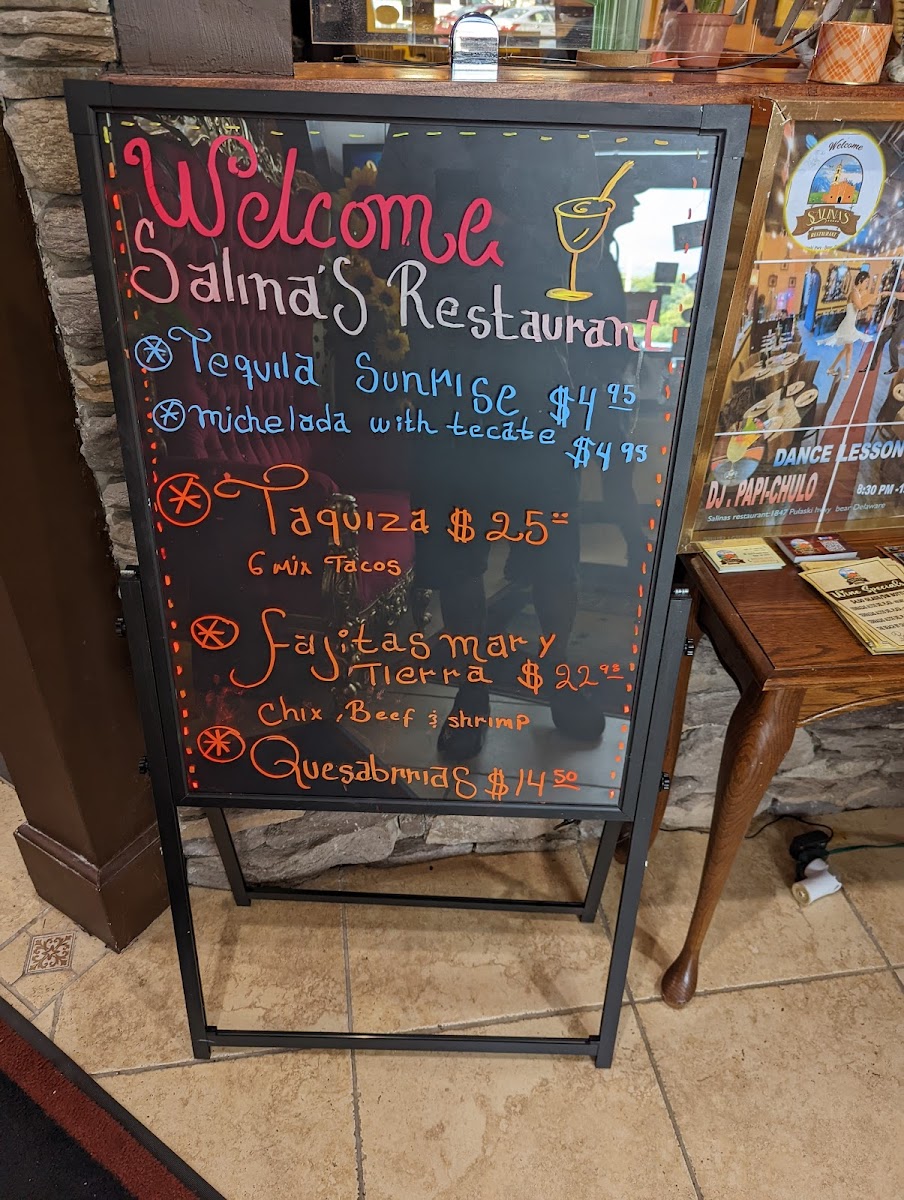 Welcome
Salina's Restaurant
Tequila Sunrise $4 95
michelada with tecate $4 95
Taquiza $25
6 mix Tacos
Fajitas mar y
Tierra $22 95
Chix, Beef & shrimp
Quesabirrias $14 50
Welcome
SALINA'S
RESTAURANT
DANCE LESSON
DJ. PAPI-CHULO
8:30 PM -1
Salinas restaurant 1847 Pulaski hwy bear Delaware
Wine Specials